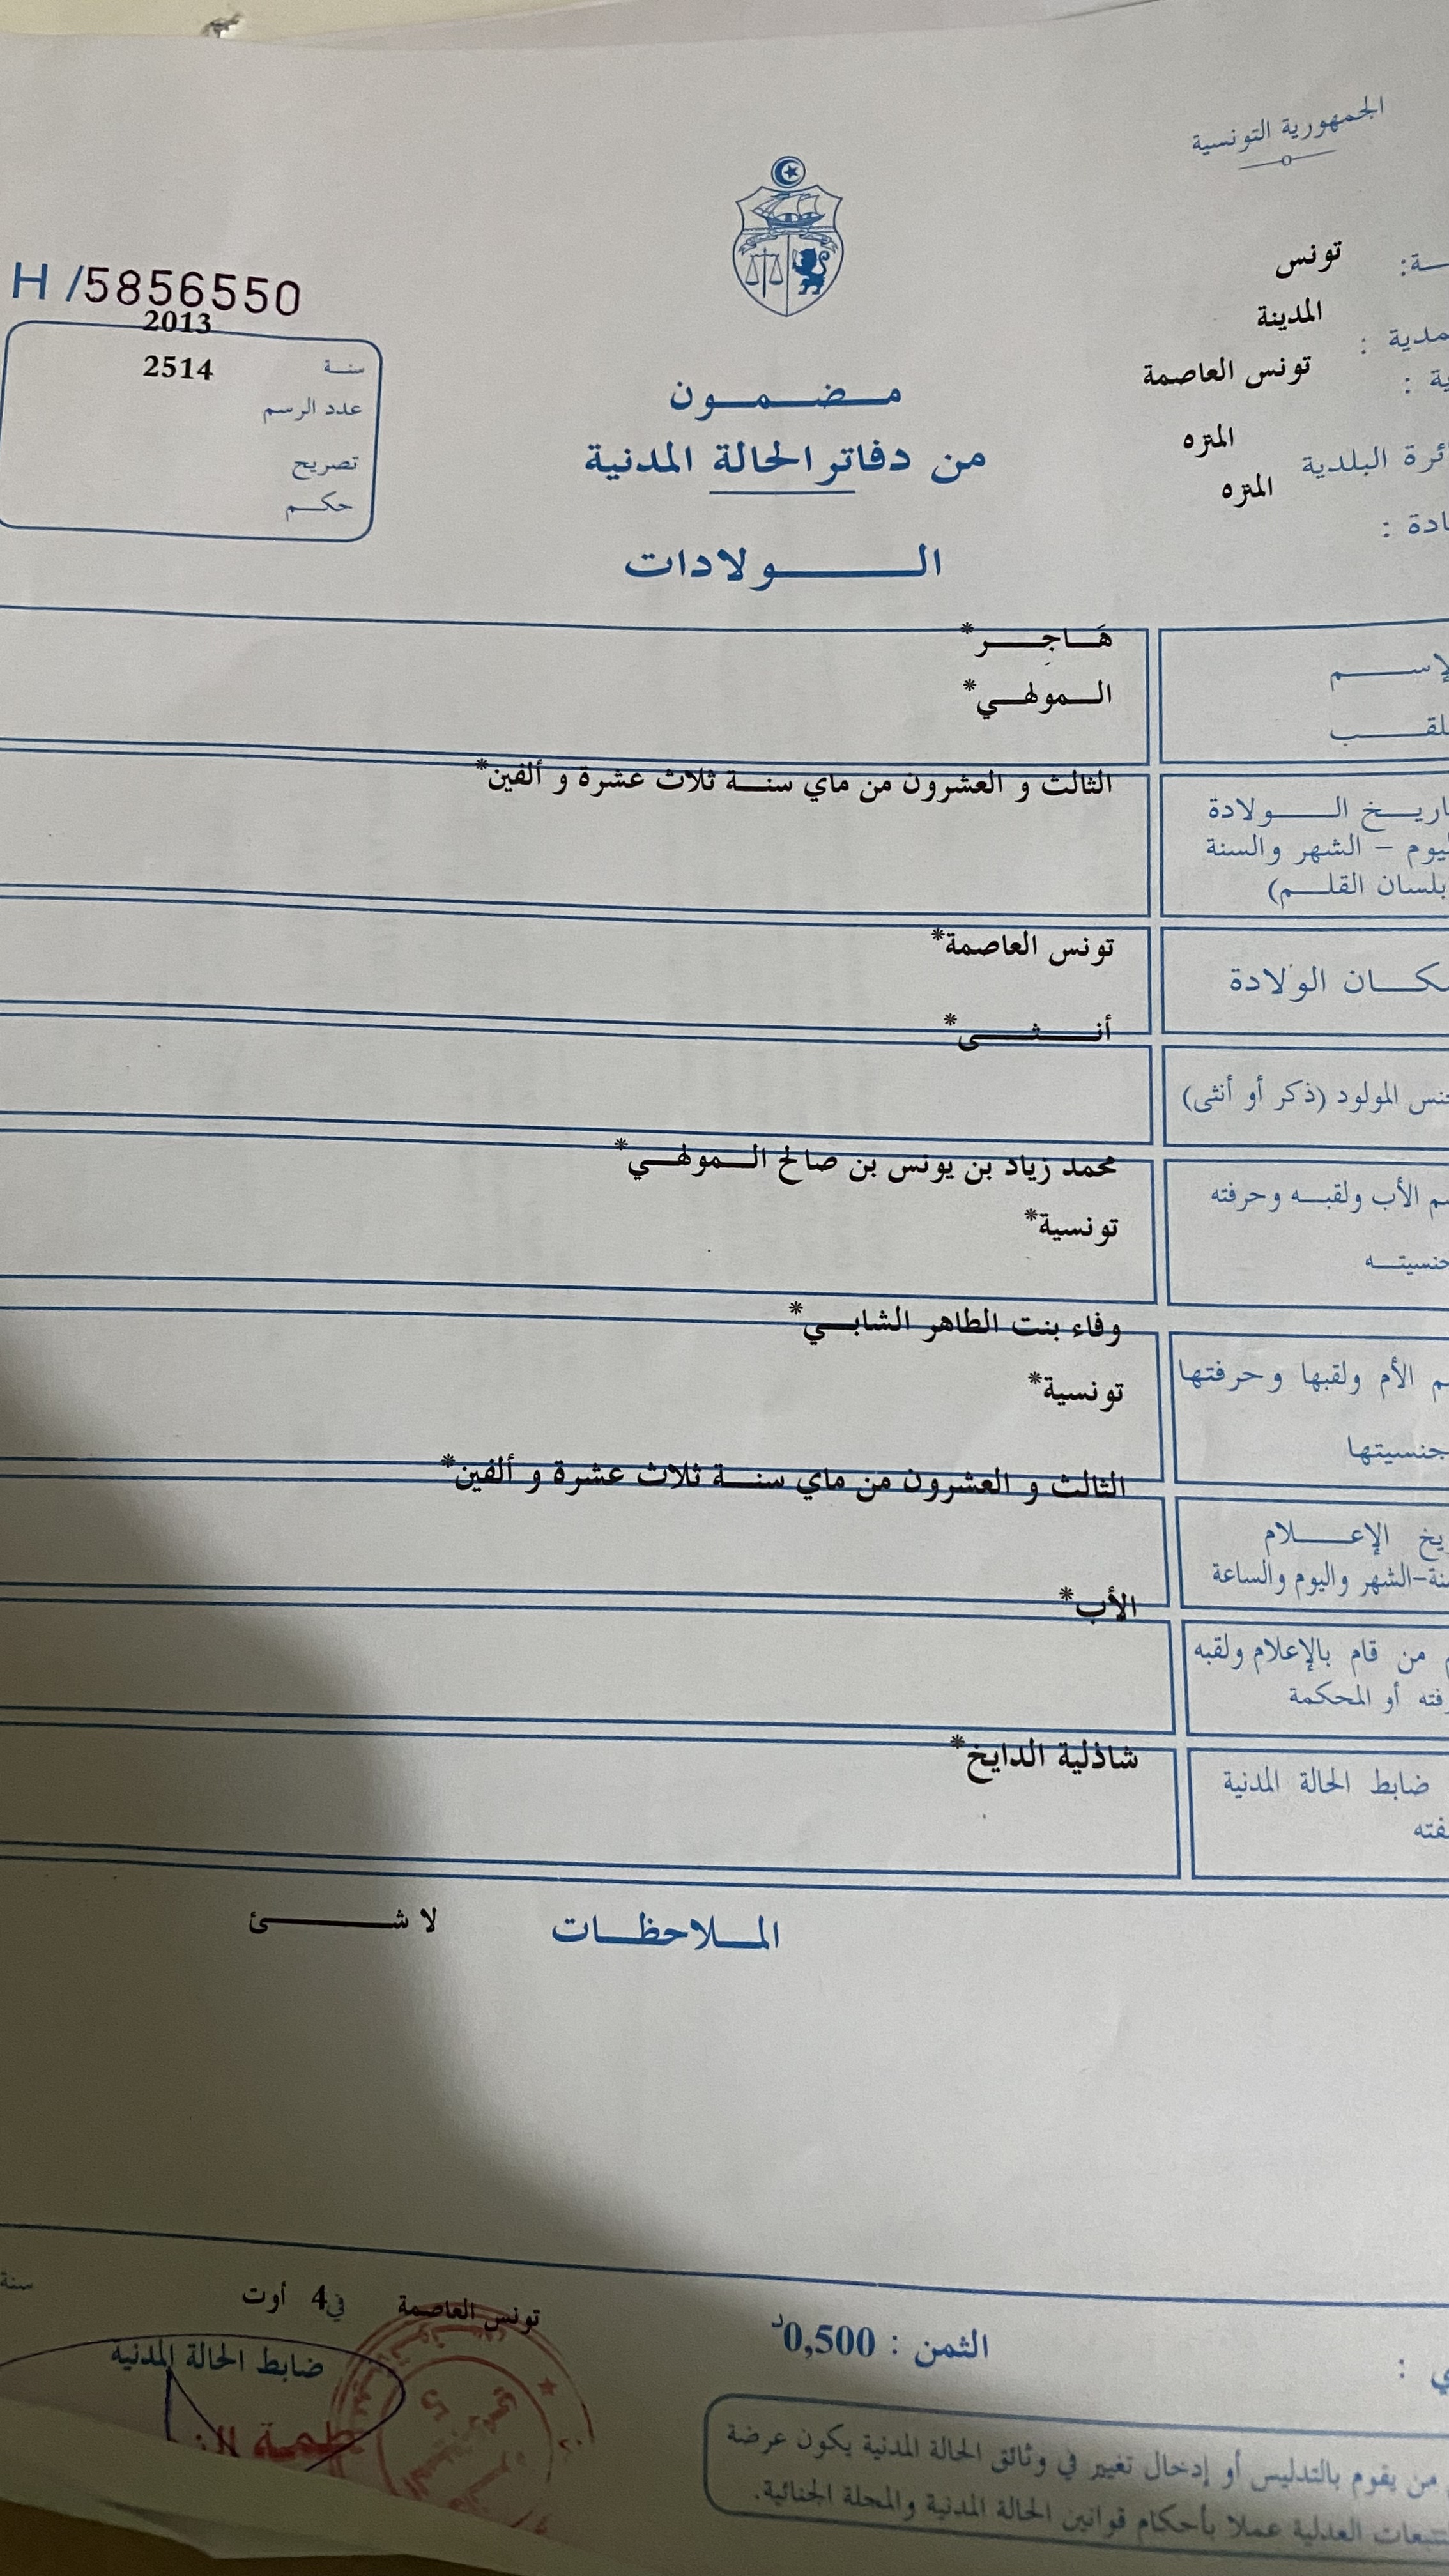 الجمهورية التونسية
تونس
المدينة
تونس العاصمة
المنزه
البلدية
المنزه
H /5856550
2013
سنة
2514
عدد الرسم
تصريح
حكم
مضمون
من دفاتر الحالة المدنية
الولادات
هَاجر*
المولهي*
الثالث و العشرون من ماي سنة ثلاث عشرة و ألفين*
الولادة
– الشهر والسنة
بلسان القلم)
تونس العاصمة*
الولادة
أنثى*
المولود (ذكر أو أنثى)
محمد زياد بن يونس بن صالح المولهي*
الأب ولقبه وحرفته
تونسية*
وفاء بنت الطاهر الشابي*
الأم ولقبها وحرفتها
تونسية*
جنسيتها
الثالث و العشرون من ماي سنة ثلاث عشرة و ألفين*
الإعلام
الشهر واليوم والساعة
الأب*
من قام بالإعلام ولقبه
أو المحكمة
شاذلية الدايخ*
ضابط الحالة المدنية
الملاحظات لا شئ
تونس العاصمة في 4 أوت سنة
ضابط الحالة المدنية
الثمن : 0,500د
من يقوم بالتدليس أو إدخال تغيير في وثائق الحالة المدنية يكون عرضة
العدلية عملا بأحكام قوانين الحالة المدنية والمجلة الجنائية.